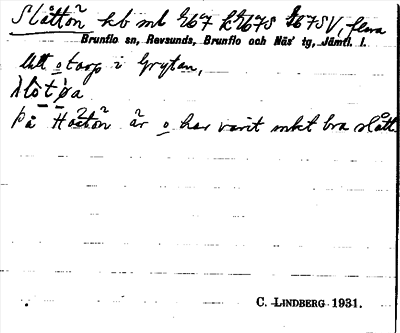 Slåttön kb ml 2b7 k 2b7S 2b7SV, flera
Brunflo sn, Revsunds, Brunflo och Näs' tg, Jämtl. l.
Utt o torp i Grytan,
slôtøa
På Hoctôn är o har varit mkt bra slått.
C. LINDBERG 1931.